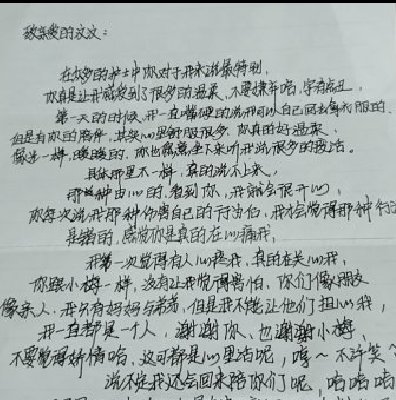 致亲爱的文文：
在众多的护士中你对于我来说最特别，
你真是让我感受到了很多的温柔，不要嫌弃哈，字有点丑，
第一天的时候我一直嘴硬的说我可以自己回去拿衣服的、
但是有你的陪伴，其实心里舒服很多，你真的好温柔、
像光一样，暖暖的、你也愿意坐下来听我说很多的废话。
具体那里不一样，真的说不上来、
那种由心的，看到你，我就会很开心，
你每次说我那种伤害自己的行为后，我才会觉得那种行
是错的，感觉你是真的在心痛我，
我第一次觉得有人心疼我，真的在关心我，
你跟小梅一样，没有让我觉得害怕，你们像朋友
像亲人，我只有妈妈与弟弟，但是我不能让他们担心我，
我一直都是一个人，谢谢你、也谢谢小梅
不要觉得矫情哈，这可都是心里话呢，哼～不许笑
说不定我还会回来陪你们呢，哈哈哈